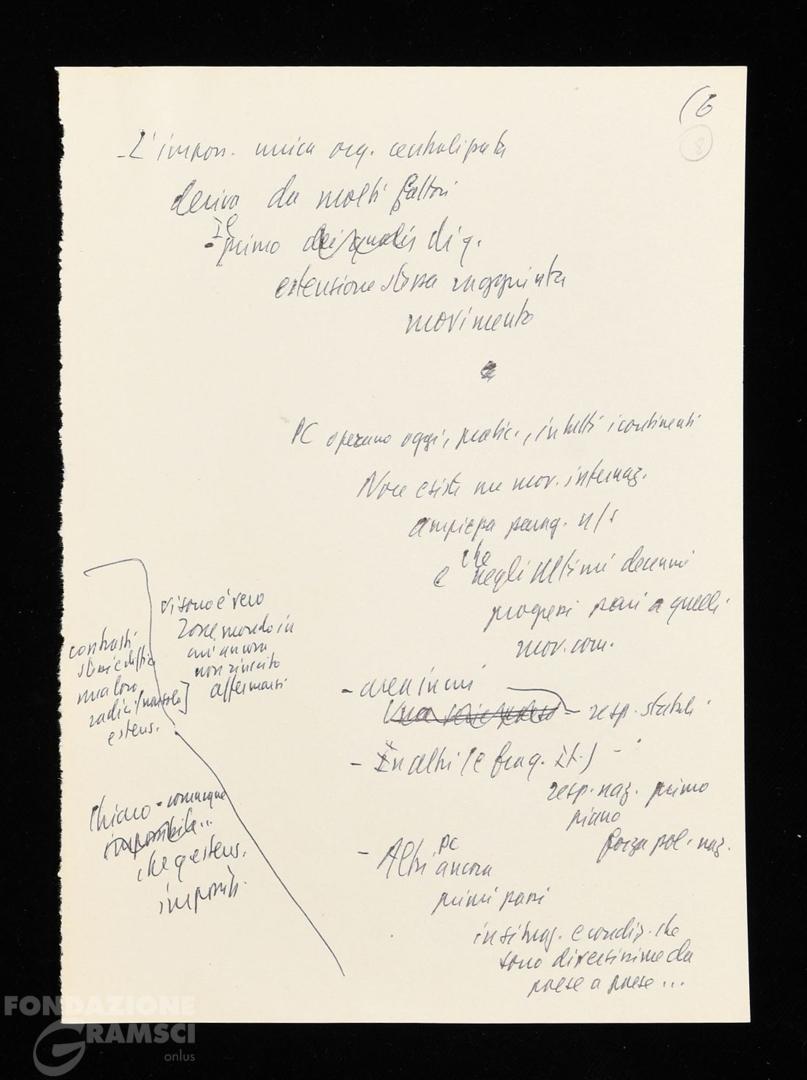 (6
8
- L'imposs. unica org. centralizzata
deriva da molti fattori
- Il primo dei quali è di q.
estensione stessa raggiunta
movimento
PC operano oggi, pratic., in tutti i continenti
Non esiste un mov. internaz.
ampiezza parag. n/s
e che negli ultimi decenni
progressi pari a quelli
mov. com.
vi sono è vero
zone mondo in
cui ancora
non riuscito
affermarsi
contrasti
ma loro
radici (non solo]
estens.
- area in cui
resp. statali
- In altri (e frag. It.) -
resp. naz. primo
piano
forza pol. naz.
- Altri PC ancora
primi passi
in situaz. e condiz. che
sono diversissime da
paese a paese ...
Chiaro - comunque
impossibile...
che q estens.
imposs.
FONDAZIONE
GRAMSCI
onlus